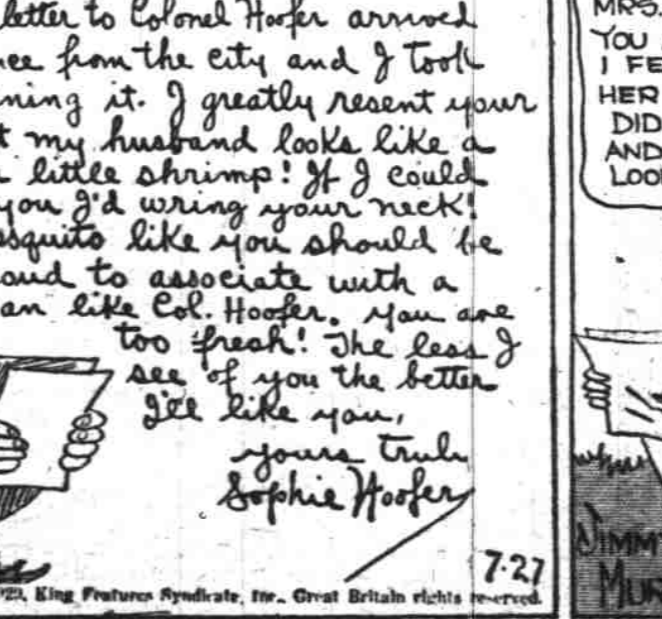 letter to Colonel Hoofer arrived
from the city and I took
it. I greatly resent your
my husband looks like a
little shrimp! If I could
you I'd wring your neck!
like you should be
to associate with a
like Col. Hoofer. You are
too fresh! The less I
see of you the better
I'll like you,
yours truly
Sophie Hoofer
7-27
King Features Syndicate, Inc., Great Britain rights reserved.
MRS.
YOU
I FE
HER
DID
AND
LOO
JIMM
MUR